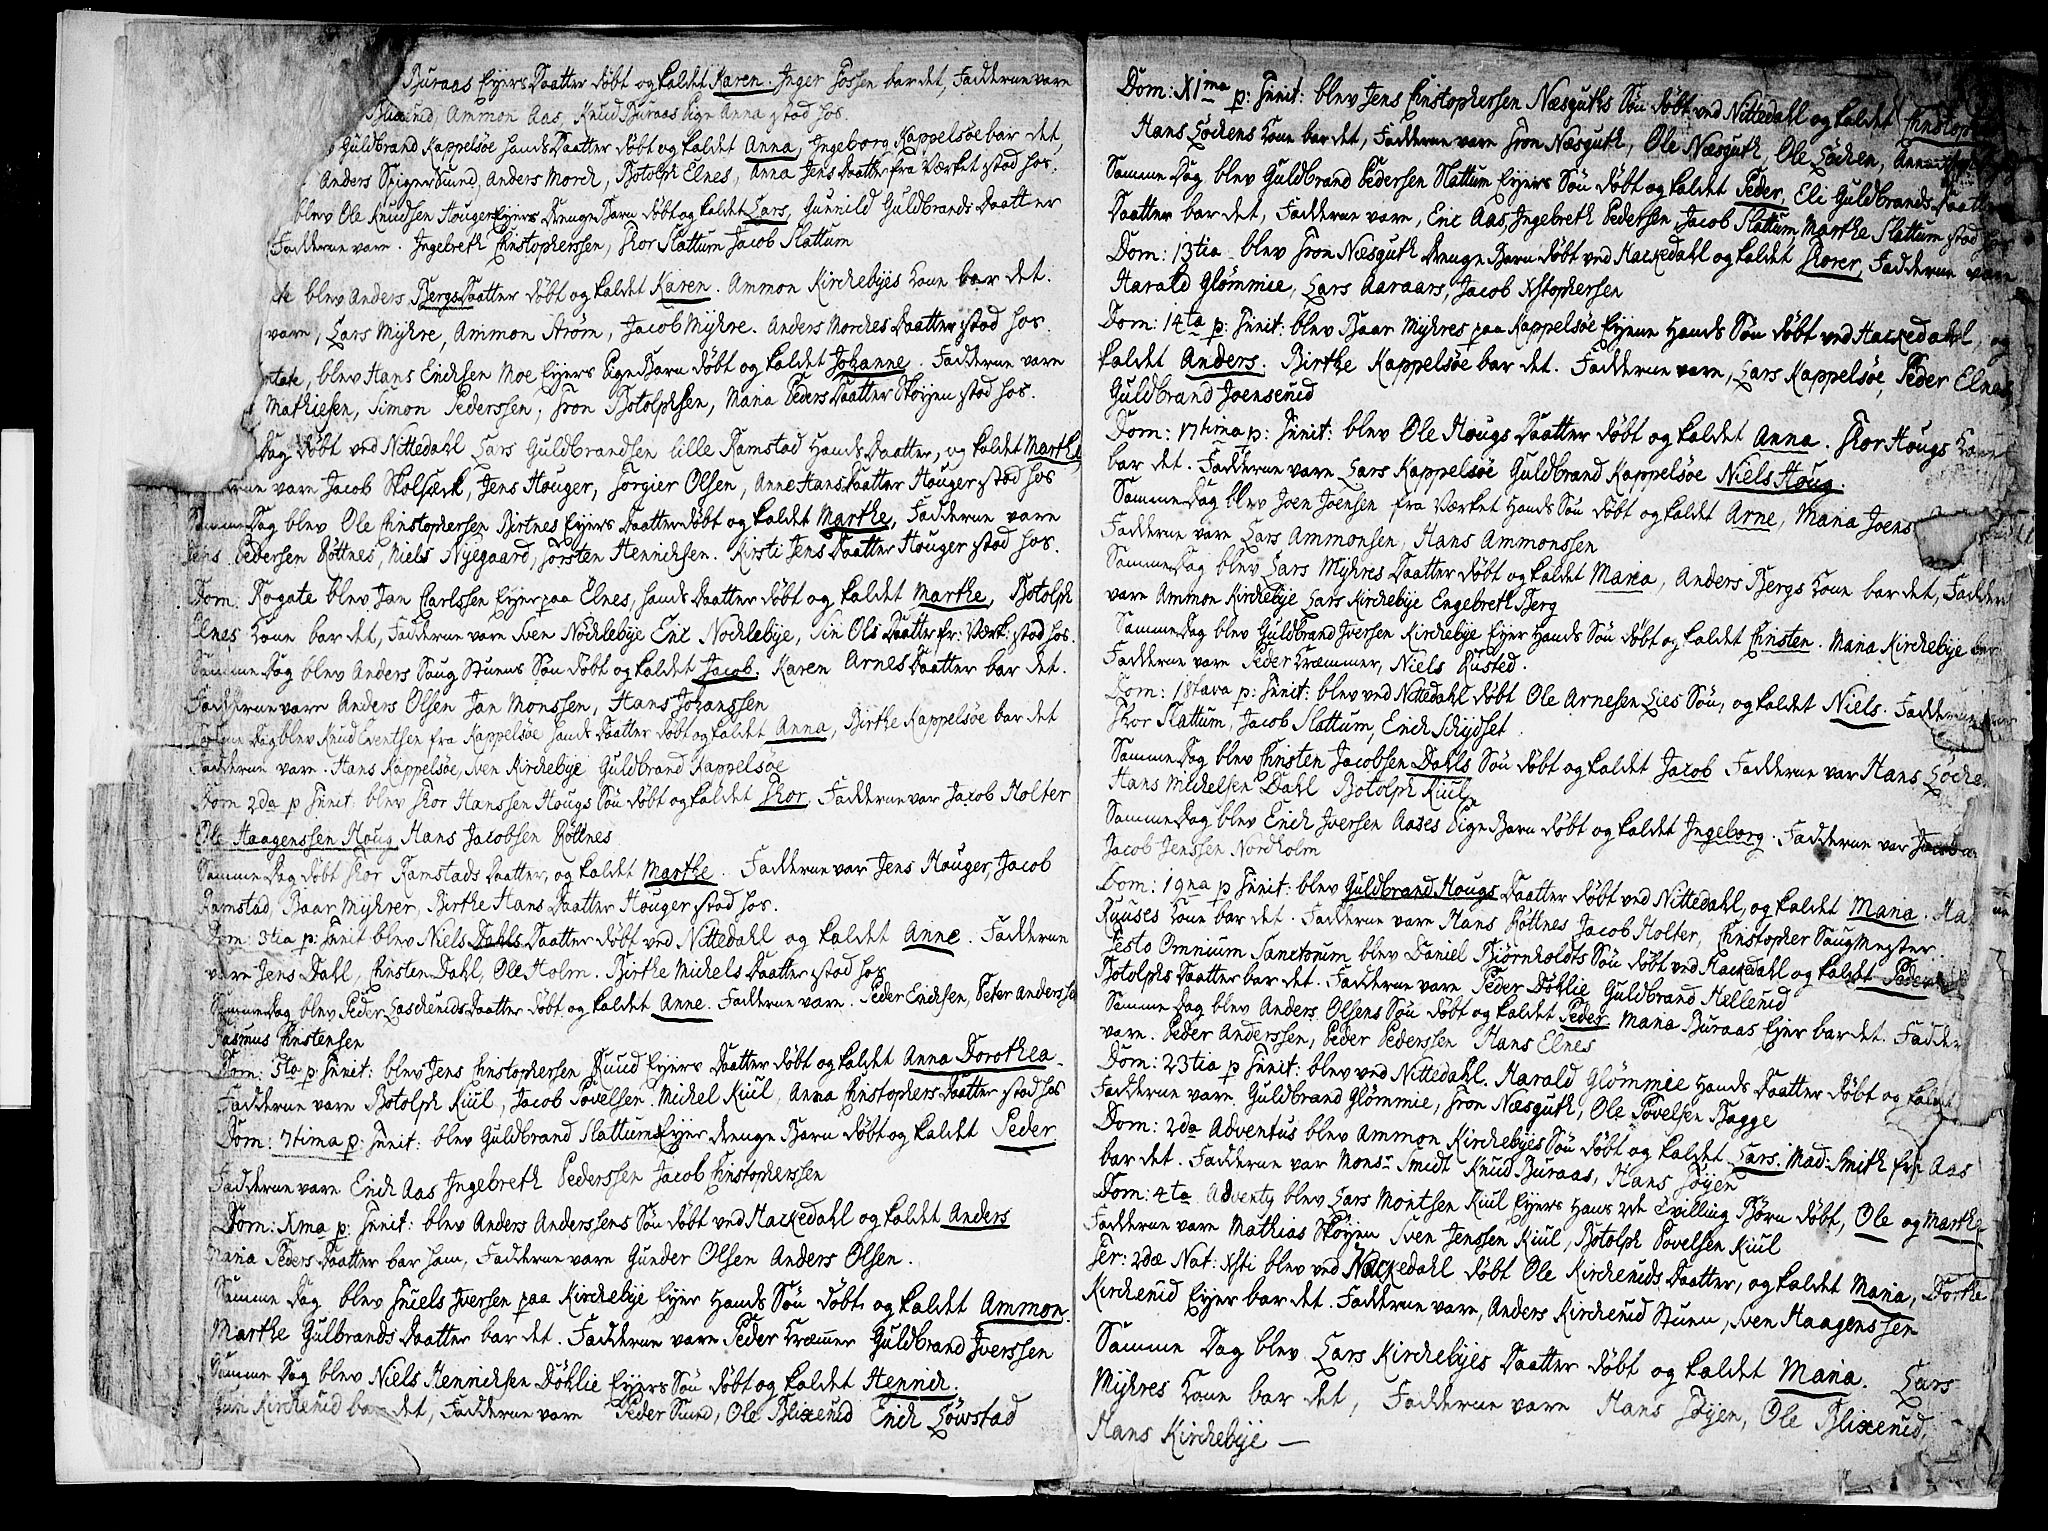 Buraas Eyers Daatter døbt og kaldet Karen. Inger Fossen bar det, Fadderne vare
Blixeriid, Ammon Aas, Knud Buraas Pige Anna stod hos.
Guldbrand Kappelsøe hands Daatter døbt og kaldet Anna, Ingeborg Kappelsøe bar det,
Anders Spigersund, Anders Morch, Botolph Elnes, Anna Jens Daatter fra Værket stod hos.
blev Ole Knudsen Houger Eyers Drenge Barn døbt og kaldet Lars, Gunnild Guldbrands Daatter
Fadderne vare. Ingebreth Christopherssen, Thor Slattum Jacob Slattum
te blev Anders Bergs Daatter døbt og kaldet Karen. Ammon Kirchebyes Kone bar det.
vare, Lars Myhre, Ammon Strøm, Jacob Myhre. Anders Morches Daatter stod hos.
tate, blev Hans Erichsen Moe Eyers Pige Barn døbt og kaldet Johanne. Fadderne vare
Mathiesen, Simon Pederssen, Tron Botolphsen, Maria Peders Daatter Skøyen stod hos.
Dag døbt ved Nittedahl Lars Guldbrandsen lille Ramstad Hands Daatter, og kaldet Marthe
rne vare Jacob Skolsæck, Jens Houger, Torgier Olsen, Anne Hans Daatter Houger stod hos
Samme Dag blev Ole Christophersen Birtnes Eyers Daatter døbt og kaldet Marthe, Fadderne vare
Jens Pedersen Røttnes, Niels Nyegaard, Torsten Henrichsen. Kirsti Jens Daatter Houger stod hos.
Dom: Rogate blev Jan Carlssen Eyer paa Elnes, hands Daatter døbt og kaldet Marthe, Botolph
Elnes Kone bar det, Fadderne vare Sven Nochlebye Eric Nochlebye, Siri Ols Daatter fr: Værk: stod hos.
Samme Dag blev Anders Saug Stuens Søn døbt og kaldet Jacob. Karen Arnes Daatter bar det.
Fadderne vare Anders Olsen Jan Monssen, Hans Johanssen
Samme Dag blev Knud Eventsen fra Kappelsøe hands Daatter døbt og kaldet Anna, Birthe Kappelsøe bar det
Fadderne vare. Hans Kappelsøe, Sven Kirchebye Guldbrand Kappelsøe
Dom 2da p Trinit: blev Thor Hanssen Hougs Søn døbt og kaldet Thor. Fadderne var Jacob Holter
Ole Haagenssen Houg, Hans Jacobsen Røttnes
Samme Dag døbt Thor Ramstads Daatter, og kaldet Marthe. Fadderne var Jens Houger, Jacob
Ramstad, Baar Myhrer, Birthe Hans Daatter Houger stod hos.
Dom: 3tia p: Trinit blev Niels Dahls Daatter døbt ved Nittedahl og kaldet Anne. Fadderne
vare Jens Dahl, Christen Dahl, Ole Holm. Birthe Michels Daatter stod hos
Samme Dag blev Peder Lascheruds Daatter døbt og kaldet Anne. Fadderne vare. Peder Erichsen, Peter Anderssen
Rasmus Christensen
Dom: 5ta p: Trinit: blev Jens Christophersen Ruud Eyers Daatter døbt og kaldet Anna Dorothea.
Fadderne vare Botolph Kiul, Jacob Povelsen. Michel Kiul, Anna Christophers Daatter stod hos
Dom: 7tima p: Trinit: blev Guldbrand Slattums Eyer Drenge Barn døbt og kaldet Peder
Fadderne vare Erich Aas Ingebreth Pederssen Jacob Christopherssen
Dom: Xma p: Trinit: blev Anders Anderssens Søn døbt ved Hackedahl og kaldet Anders
Maria Peders Daatter bar ham, Fadderne vare Gunder Olsen Anders Olsen.
Samme Dag blev Truels Iversen paa Kirchebye Eyer Hands Søn døbt og kaldet Ammon.
Marthe Gulbrands Daatter bar det. Fadderne vare Peder Cræmer Guldbrand Iverssen
Samme Dag blev Niels Henrichsen Døhlie Eyers Søn døbt og kaldet Henrich.
Kircherud bar det, Fadderne vare Peder Sund, Ole Blixerud Erich Løvstad
Dom: XIma p: Trinit: blev Jens Christophersen Næsguths Søn døbt ved Nittedahl og kaldet Christopher
Hans Løckens Kone bar det, Fadderne vare Tron Næsguth, Ole Næsguth, Ole Løcken,
Samme Dag blev Guldbrand Pedersen Slattum Eyers Søn døbt og kaldet Peder, Eli Guldbrands Daatter
Daatter bar det, Fadderne vare, Eric Aas, Ingebreth Pederssen, Jacob Slattum, Marthe Slattum stod hos
Dom: 13tia blev Tron Næsguth Drenge Barn døbt ved Hackedahl og kaldet Thorer, Fadderne vare
Harald Glømmie, Lars Aaraars, Jacob Xstophersen
Dom: 14ta p: Trinit: blev Baar Myhres paa Kappelsøe Eyene Hands Søn døbt ved Hackedahl, og
kaldet Anders. Birthe Kappelsøe bar det. Fadderne vare, Lars Kappelsøe, Peder Elnes,
Guldbrand Joenserud
Dom: 17tima p: Trinit: blev Ole Hougs Daatter døbt og kaldet Anna. Thor Hougs Kone
bar det. Fadderne vare Lars Kappelsøe Guldbrand Kappelsøe Niels Houg.
Samme Dag blev Joen Joensen fra Værket Hands Søn døbt og kaldet Arne, Maria Joens
Fadderne vare Lars Ammonsen, Hans Ammonssen
Samme Dag blev Lars Myhres Daatter døbt og kaldet Maria, Anders Bergs Kone bar det, Fadderne
vare Ammon Kirchebye Lars Kirchebye Engebreth Berg
Samme Dag blev Guldbrand Iversen Kirchebye Eyer Hands Søn døbt og kaldet Christen. Maria Kirchebye bar
Fadderne vare Peder Cræmmer, Niels Rusted.
Dom: 18tava p: Trinit: blev ved Nittedahl døbt Ole Arnesen Lies Søn, og kaldet Niels. Fadderne vare
Thor Slattum, Jacob Slattum, Erich Schydset.
Samme Dag blev Christen Jacobsen Dahls Søn døbt og kaldet Jacob Fadderne var Hans Løcke
Hans Michelsen Dahl Botolph Kiul
Samme Dag blev Erich Iversen Aases Pige Barn døbt og kaldet Ingeborg. Fadderne var
Jacob Jenssen Nordholm
Dom: 19na p Trinit: blev Guldbrand Hougs Daatter døbt ved Nittedahl, og kaldet Maria. Ha
Ruuses Kone bar det. Fadderne vare Hans Røttnes Jacob Holter, Christopher Saugmester.
Festo Omnium Sanctorum blev Daniel Biørnholdts Søn døbt ved Hackedahl og kaldet Peder
Botolphs Daatter bar det. Fadderne vare Peder Døhlie Guldbrand Hellerud
Samme Dag blev Anders Olsens Søn døbt og kaldet Peder. Maria Buraas Eyer bar det. Fadder
vare. Peder Anderssen, Peder Pederssen Hans Elnes
Dom: 23tia p Trinit: blev ved Nittedahl. Harald Glømmie Hands Daatter døbt og kaldet
Fadderne vare Guldbrand Glømmie, Tron Næsguth, Ole Povelsen Bagge
Dom: 2da Adventus blev Ammon Kirchebyes Søn døbt og kaldet Lars. Mad: Smith fra Aas
bar det. Fadderne var Monsr Smidt Knud Buraas, Hans Tøyen
Dom: 4ta Adventy blev Lars Montsen Kiul Eyers Hans 2de Tvilling Børn døbt, Ole og Marthe
Fadderne vare Mathias Skøyen Sven Jenssen Kiul, Botolph Povelsen Kiul
Fer: 2dæ Nat: Xsti blev ved Hackedahl døbt Ole Kircheruds Daatter, og kaldet Maria, Dorthe
Kircherud Eyer bar det. Fadderne vare, Anders Kircherud Stuen, Sven Haagenssen
Samme Dag blev Lars Kirchebyes Daatter døbt og kaldet Maria. Lars
Myhres Kone bar det, Fadderne vare Hans Tøyen, Ole Blixerud,
Hans Kirchebye —